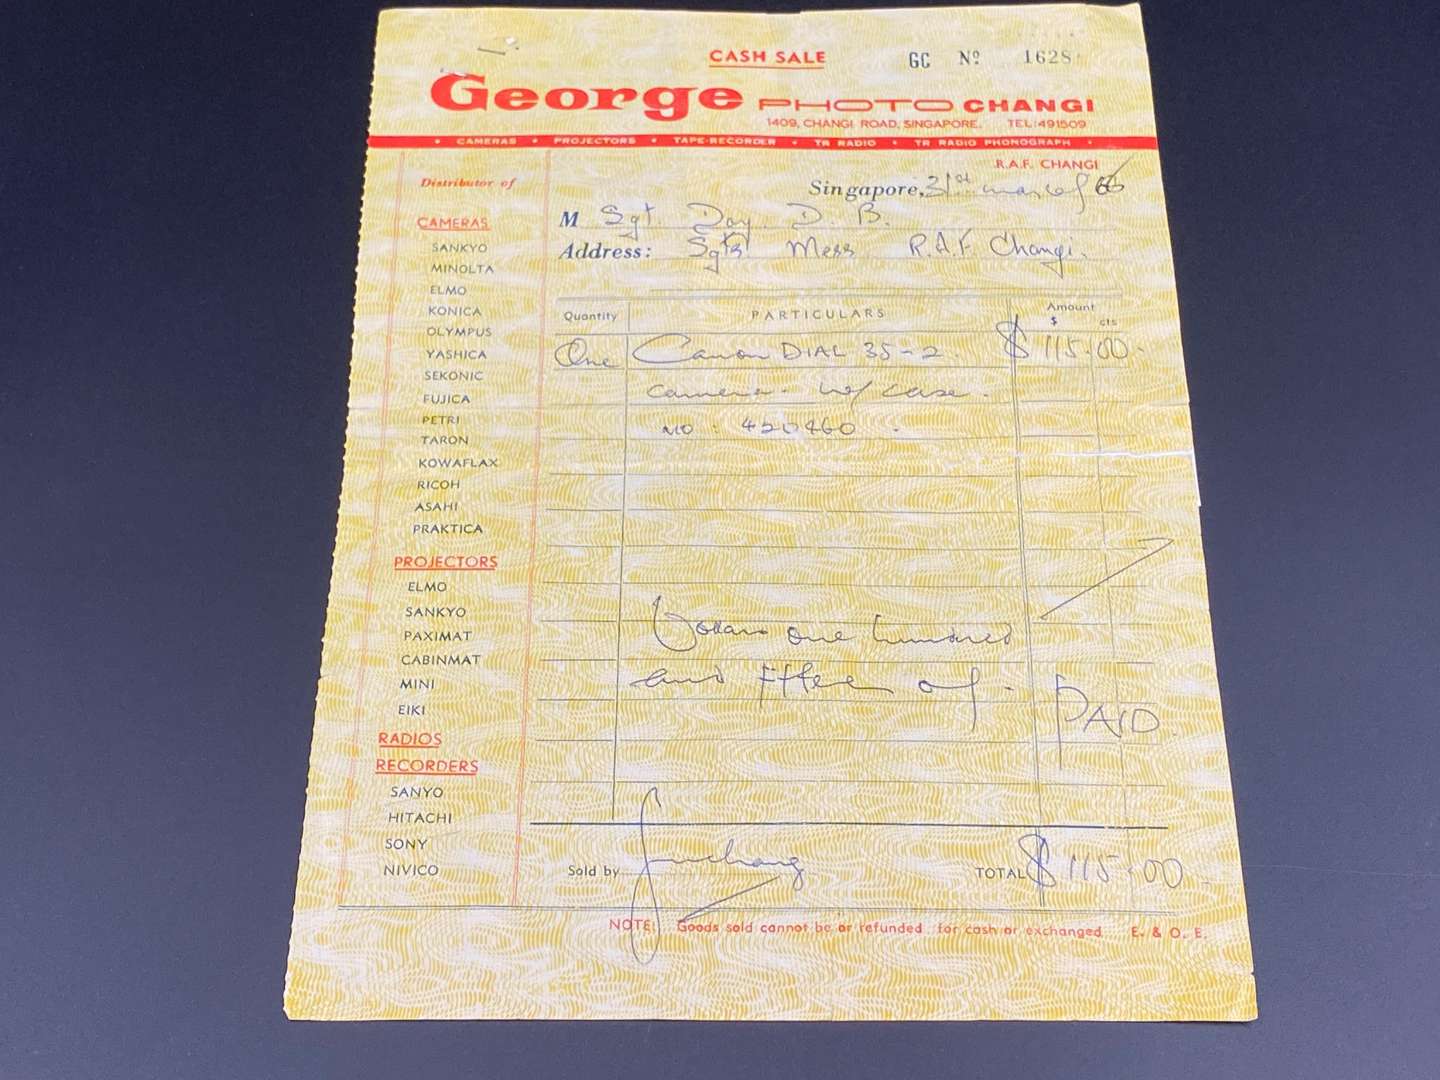 CASH SALE GC Nº 1628
George PHOTO CHANGI
1409, CHANGI ROAD, SINGAPORE. TEL: 491509
• CAMERAS • PROJECTORS • TAPE-RECORDER • TR RADIO • TR RADIO PHONOGRAPH •
R.A.F. CHANGI
Singapore, 31st 66
M Sgt. Day. D. B.
Address: Sgts' Mess R.A.F. Changi.
Distributor of
CAMERAS
SANKYO
MINOLTA
ELMO
KONICA
OLYMPUS
YASHICA
SEKONIC
FUJICA
PETRI
TARON
KOWAFLAX
RICOH
ASAHI
PRAKTICA
PROJECTORS
ELMO
SANKYO
PAXIMAT
CABINMAT
MINI
EIKI
RADIOS
RECORDERS
SANYO
HITACHI
SONY
NIVICO
Quantity PARTICULARS Amount
$ cts
One Canon DIAL 35-2. $ 115.00
camera. w/ case.
NO: 420460.
Dollars one hundred
and
PAID.
Sold by
TOTAL $ 115.00
NOTE: Goods sold cannot be or refunded for cash or exchanged E. & O. E.